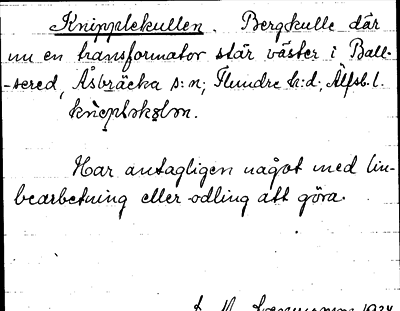 Knipplekullen. Bergkulle där
nu en transformator står väster i Ball-
-sered, Åsbräcka s:n; Flundre h:d; Älfsb. l.
Har antagligen något med lin-
bearbetning eller odling att göra.